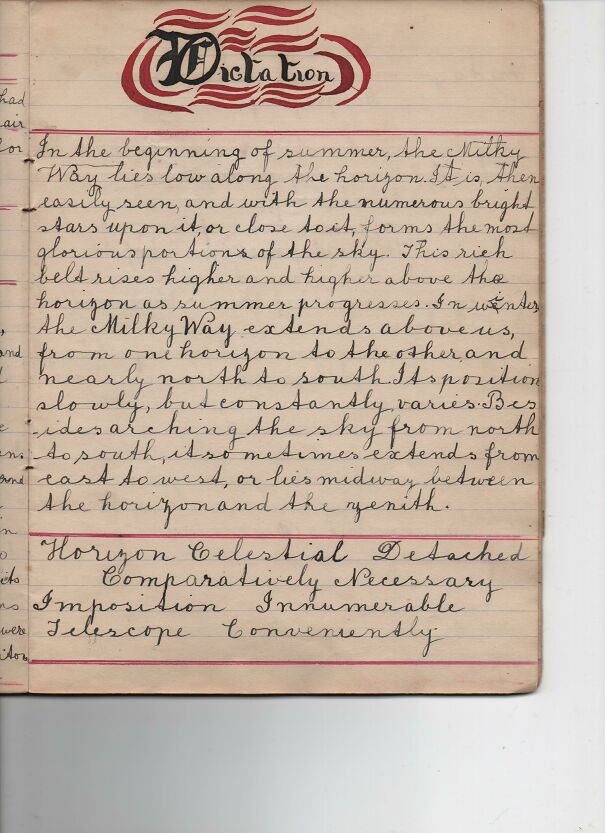 Dictation
In the beginning of summer, the Milky
Way lies low along the horizon. It is, then
easily seen, and with the numerous bright
stars upon it, or close to it, forms the most
glorious portions of the sky. This rich
belt rises higher and higher above the
horizon as summer progresses. In winter
the Milky Way extends above us,
from one horizon to the other, and
nearly north to south. Its position
slowly, but constantly, varies. Bes
ides arching the sky from north
to south, it sometimes extends from
east to west, or lies midway between
the horizon and the zenith.
Horizon Celestial Detached
Comparatively Necessary
Imposition Innumerable
Telescope Conveniently
had
air
for
and
its
were